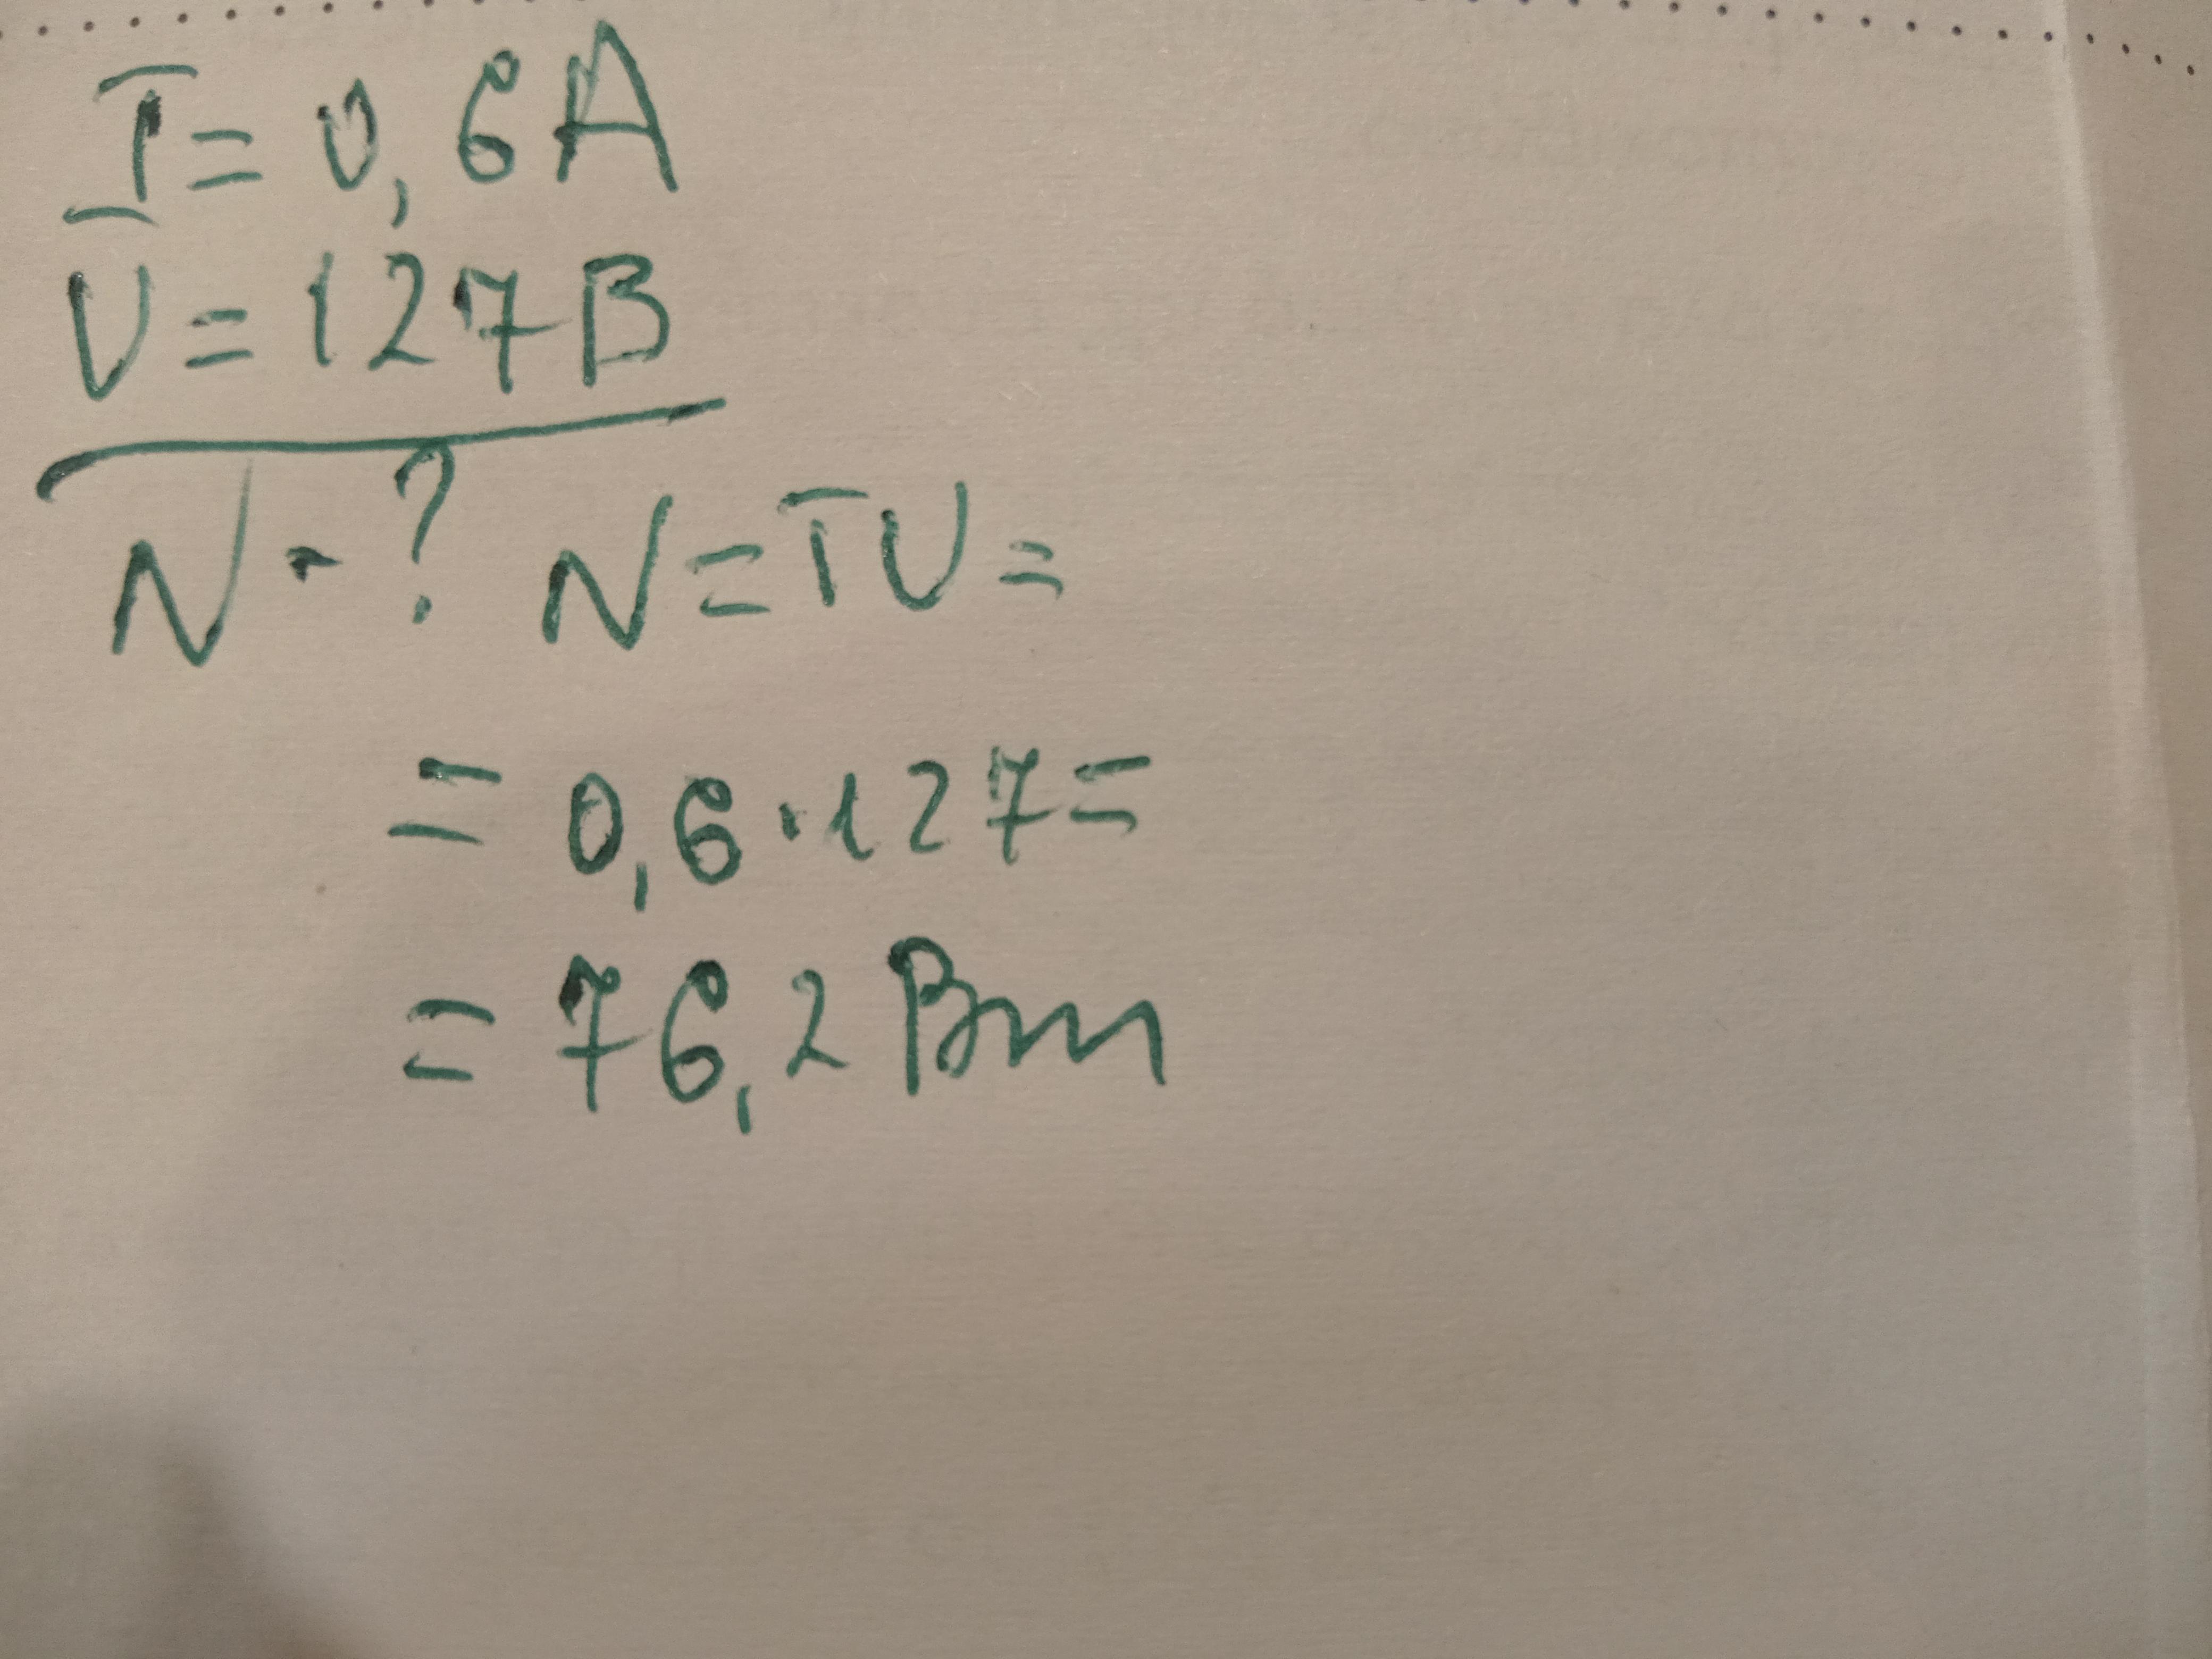 I = 0,6 А
U = 127 В
N - ? N = IU =
= 0,6 · 127 =
= 76,2 Вт